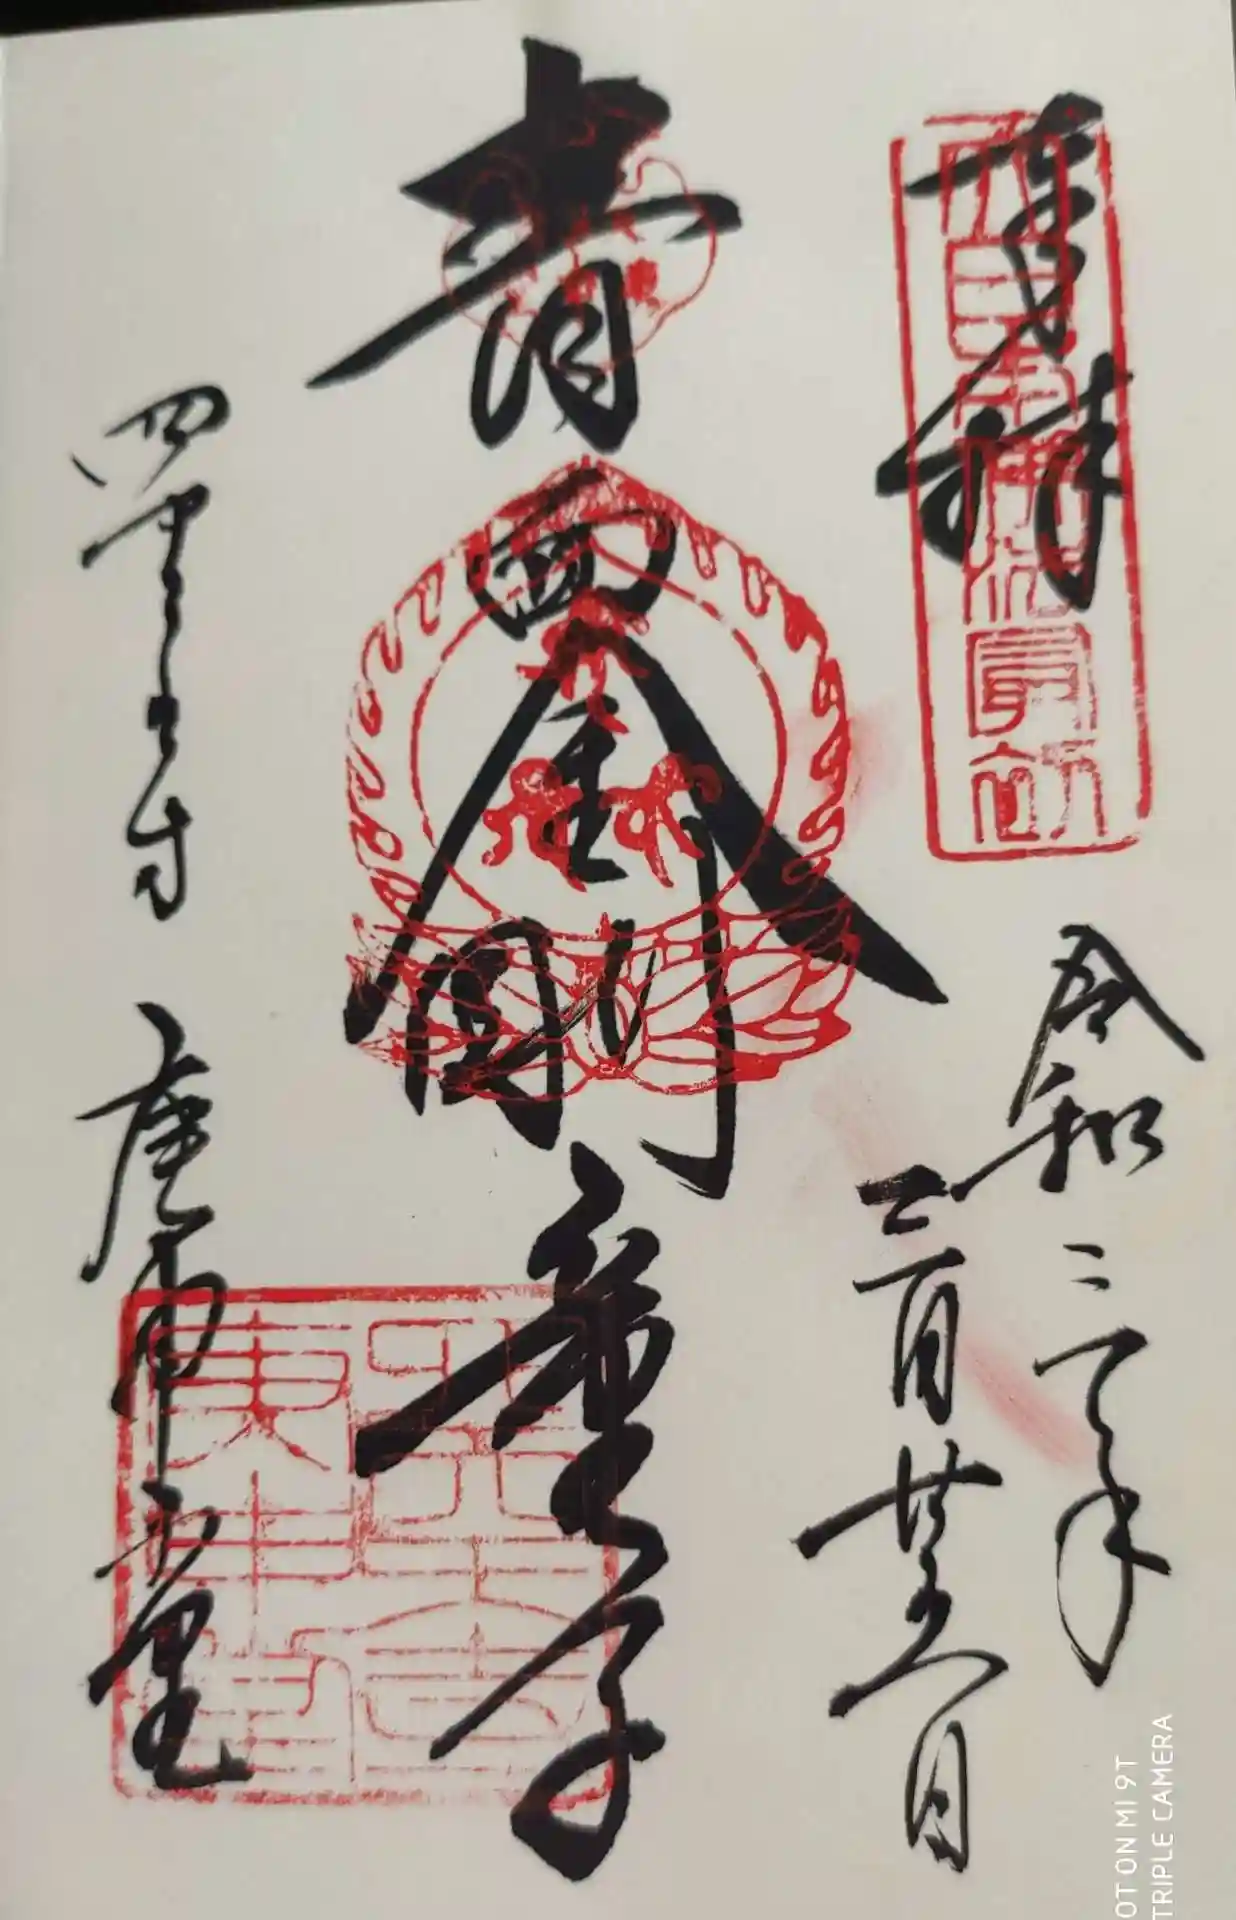 奉拝
令和二年
二月廿五日
青面金剛童子
四天王寺
庚申堂
大日本佛法最初
OT ON MI 9T
TRIPLE CAMERA